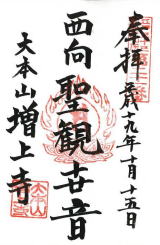 奉拝
平成十九年十月十五日
西向聖観世音
大本山増上寺
大本山